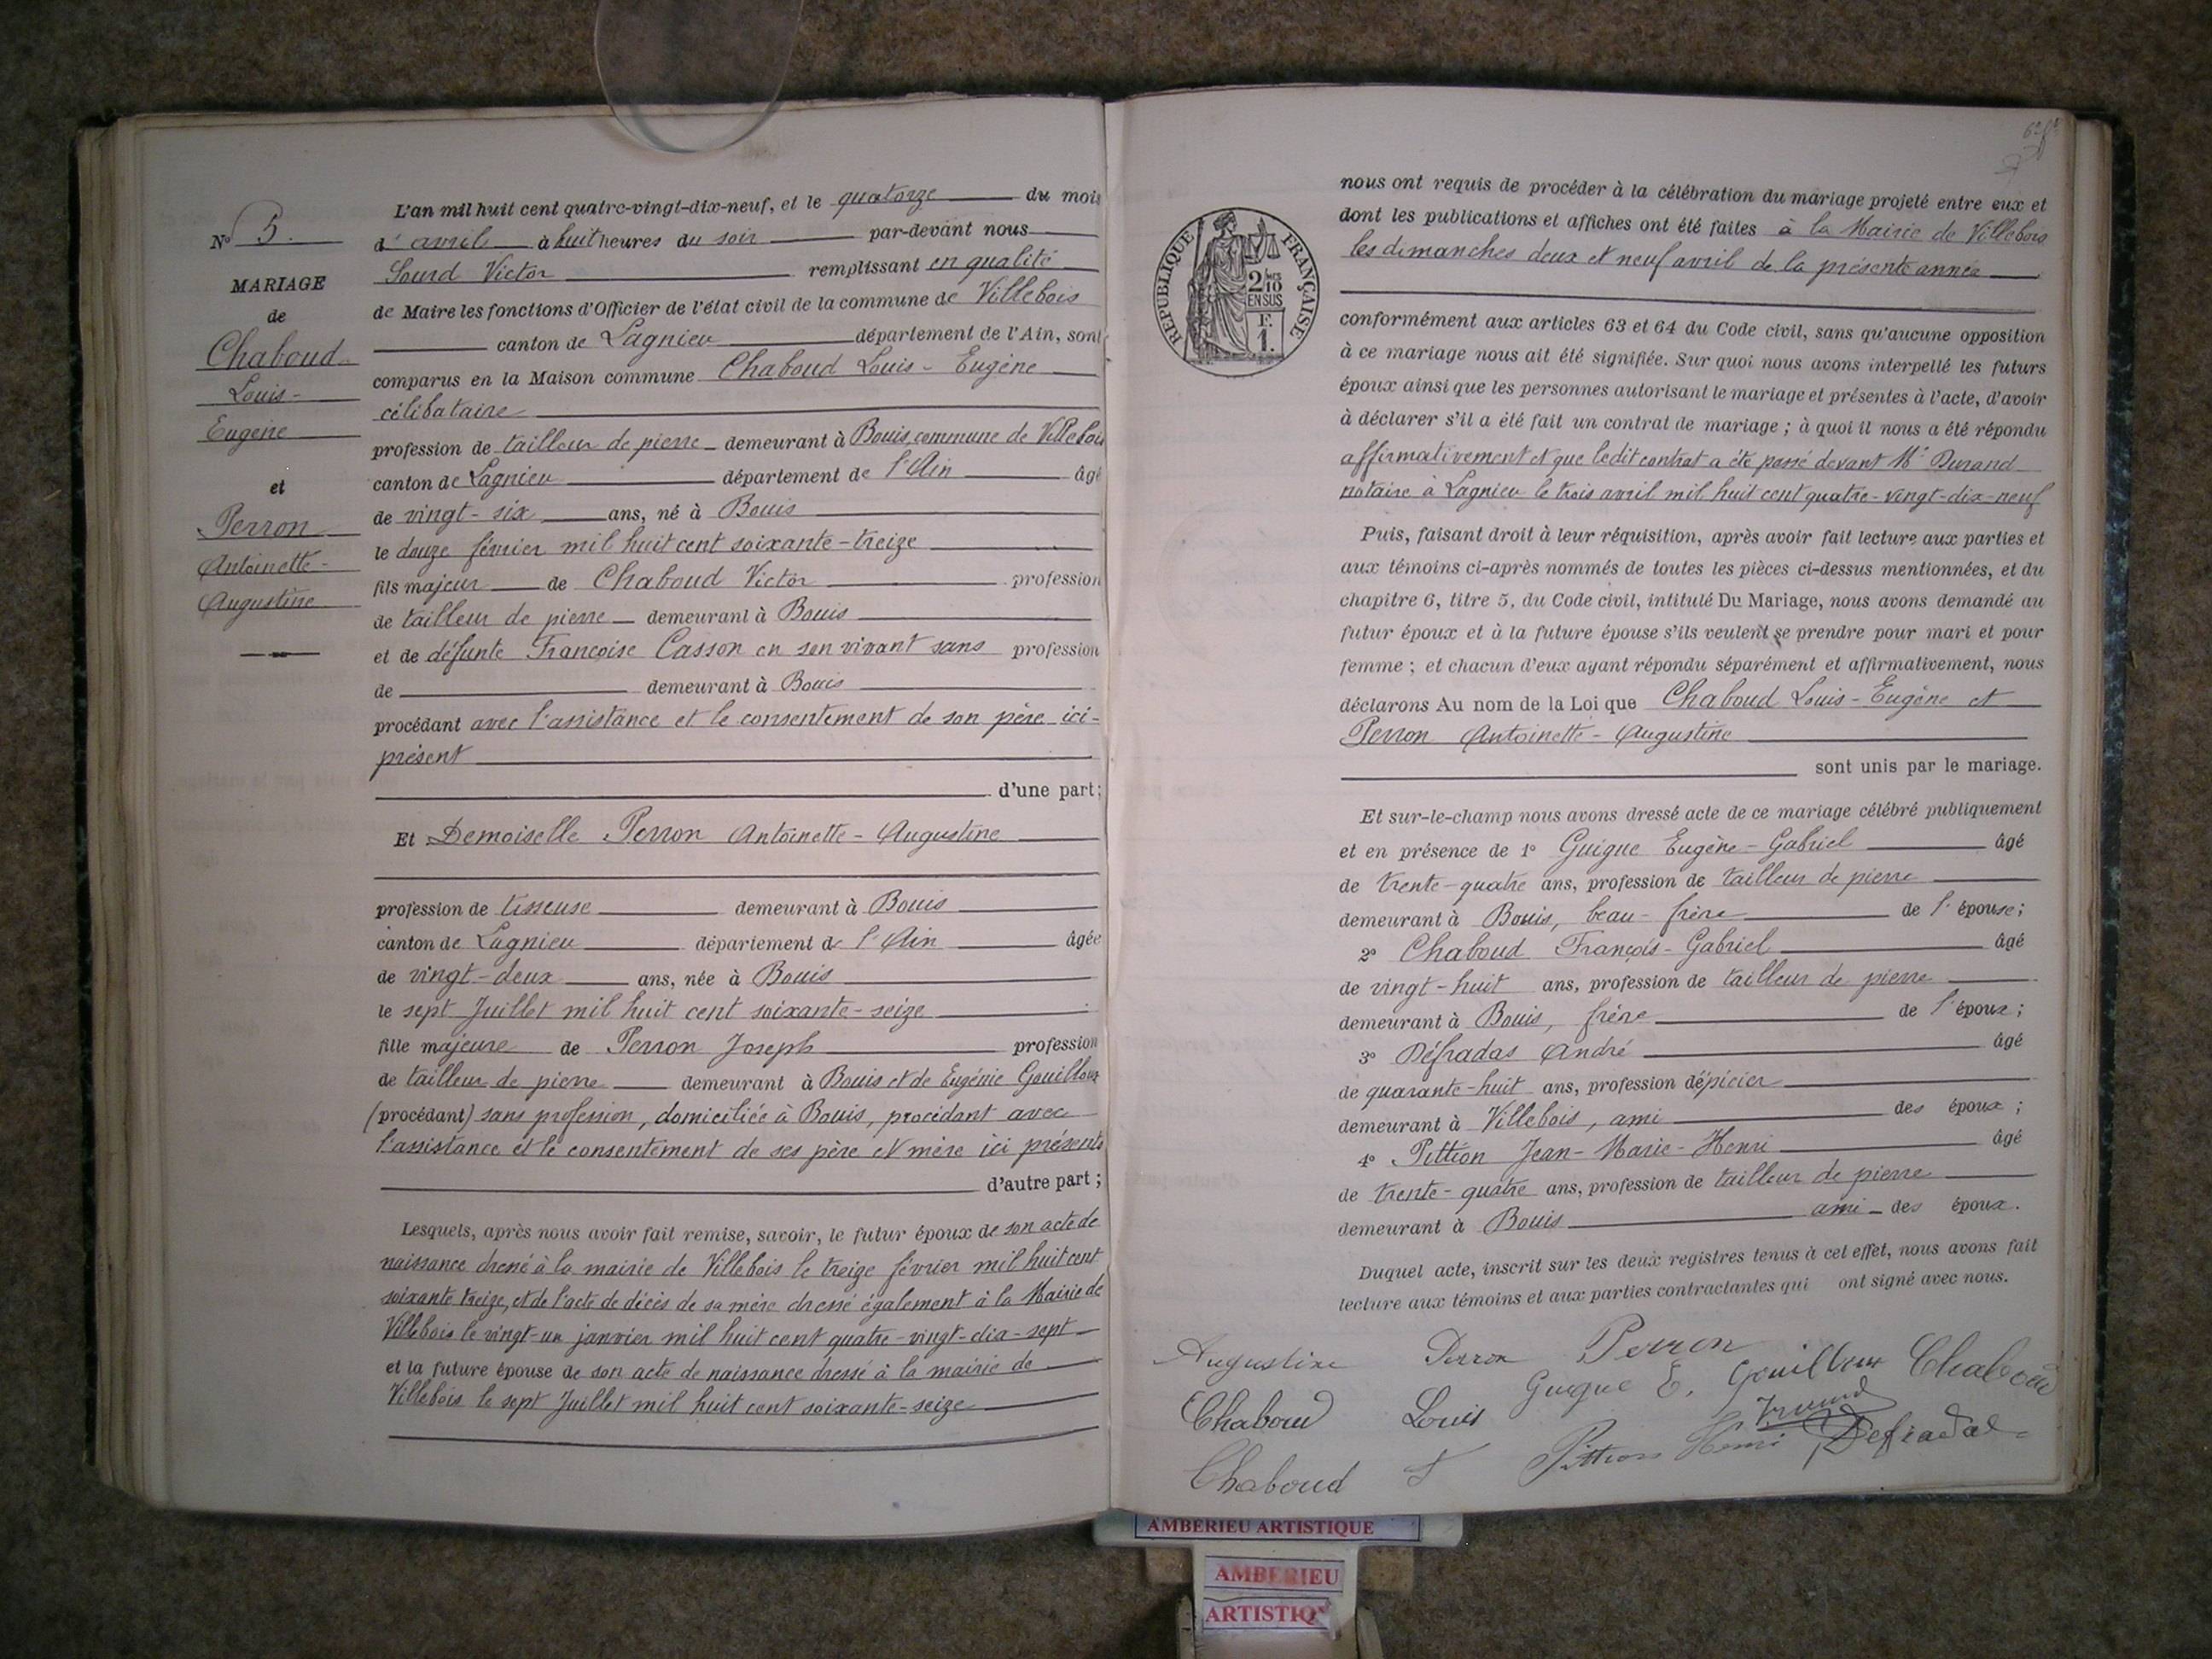 N° 5.
MARIAGE
de
Chaboud
Louis-
Eugène
et
Perron
Antoinette-
Augustine
L'an mil huit cent quatre-vingt-dix-neuf, et le quatorze du mois
d'avril à huit heures du soir par-devant nous
Sourd Victor remplissant en qualité
de Maire les fonctions d'Officier de l'état civil de la commune de Villebois
canton de Lagnieu département de l'Ain, sont
comparus en la Maison commune Chaboud Louis-Eugène
célibataire
profession de tailleur de pierre demeurant à Bouis, commune de Villebois
canton de Lagnieu département de l'Ain âgé
de vingt-six ans, né à Bouis
le douze février mil huit cent soixante-treize
fils majeur de Chaboud Victor profession
de tailleur de pierre demeurant à Bouis
et de défunte Françoise Casson en son vivant sans profession
de demeurant à Bouis
procédant avec l'assistance et le consentement de son père ici-
présent
d'une part;
Et Demoiselle Perron Antoinette-Augustine
profession de tisseuse demeurant à Bouis
canton de Lagnieu département de l'Ain âgée
de vingt-deux ans, née à Bouis
le sept Juillet mil huit cent soixante-seize
fille majeure de Perron Joseph profession
de tailleur de pierre demeurant à Bouis et de Eugénie Gouilloux
(procédant) sans profession, domiciliée à Bouis, procédant avec
l'assistance et le consentement de ses père et mère ici présents
d'autre part;
Lesquels, après nous avoir fait remise, savoir, le futur époux de son acte de
naissance dressé à la mairie de Villebois le treize février mil huit cent
soixante treize, et de l'acte de décès de sa mère dressé également à la Mairie de
Villebois le vingt-un janvier mil huit cent quatre-vingt-dix-sept
et la future épouse de son acte de naissance dressé à la mairie de
Villebois le sept Juillet mil huit cent soixante-seize
RÉPUBLIQUE FRANÇAISE
2/10
EN SUS
F.
1.
nous ont requis de procéder à la célébration du mariage projeté entre eux et
dont les publications et affiches ont été faites à la Mairie de Villebois
les dimanches deux et neuf avril de la présente année
conformément aux articles 63 et 64 du Code civil, sans qu'aucune opposition
à ce mariage nous ait été signifiée. Sur quoi nous avons interpellé les futurs
époux ainsi que les personnes autorisant le mariage et présentes à l'acte, d'avoir
à déclarer s'il a été fait un contrat de mariage; à quoi il nous a été répondu
affirmativement et que ledit contrat a été passé devant Me Durand
notaire à Lagnieu le trois avril mil huit cent quatre-vingt-dix-neuf
Puis, faisant droit à leur réquisition, après avoir fait lecture aux parties et
aux témoins ci-après nommés de toutes les pièces ci-dessus mentionnées, et du
chapitre 6, titre 5, du Code civil, intitulé Du Mariage, nous avons demandé au
futur époux et à la future épouse s'ils veulent se prendre pour mari et pour
femme; et chacun d'eux ayant répondu séparément et affirmativement, nous
déclarons Au nom de la Loi que Chaboud Louis-Eugène et
Perron Antoinette-Augustine
sont unis par le mariage.
Et sur-le-champ nous avons dressé acte de ce mariage célébré publiquement
et en présence de 1° Guigue Eugène-Gabriel âgé
de trente-quatre ans, profession de tailleur de pierre
demeurant à Bouis, beau-frère de l'épouse;
2° Chaboud François-Gabriel âgé
de vingt-huit ans, profession de tailleur de pierre
demeurant à Bouis, frère de l'époux;
3° Défradas André âgé
de quarante-huit ans, profession d'épicier
demeurant à Villebois, ami des époux;
4° Pittion Jean-Marie-Henri âgé
de trente-quatre ans, profession de tailleur de pierre
demeurant à Bouis ami des époux.
Duquel acte, inscrit sur les deux registres tenus à cet effet, nous avons fait
lecture aux témoins et aux parties contractantes qui ont signé avec nous.
Augustine Perron Perron
Guigue E. Gouilloux Chaboud
Chaboud Louis
Pittion Henri Defradas
Chaboud
AMBERIEU ARTISTIQUE
AMBERIEU
ARTISTIQ